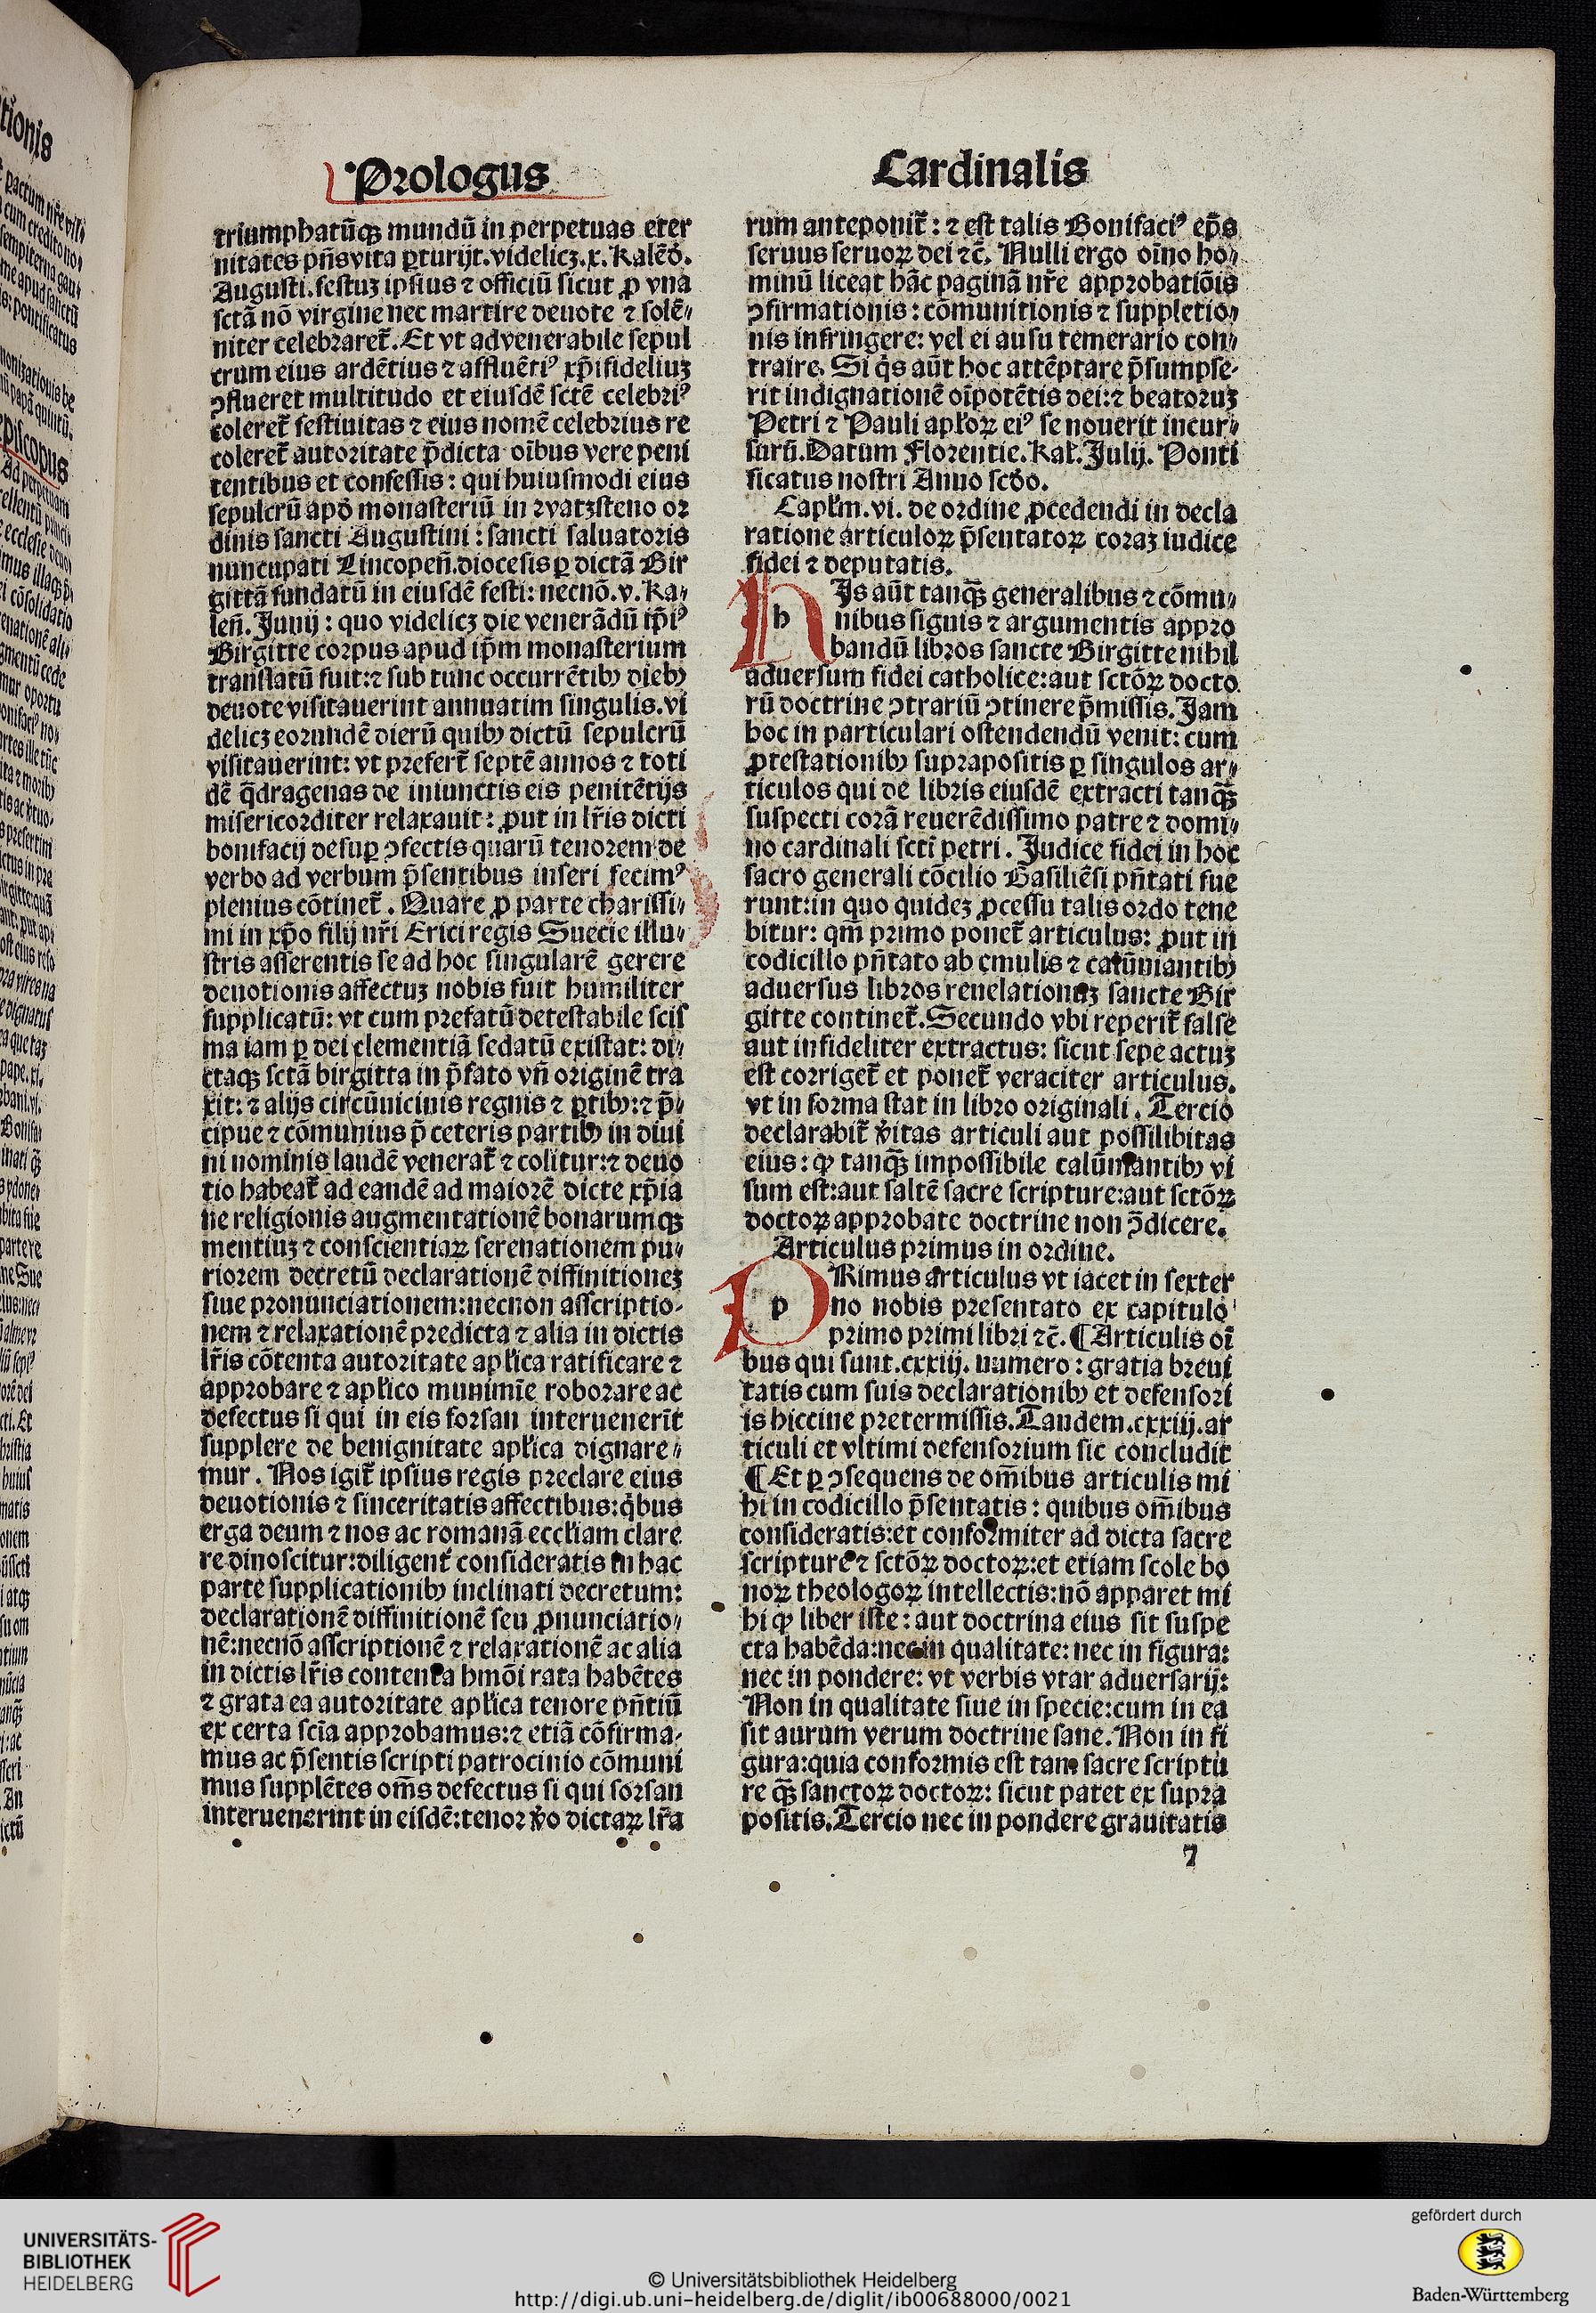 Prologus
Cardinalis
triumphatūqꝫ mundū in perpetuas eter
nitates pn̄s vita ꝑturijt. videlicꝫ. x. Kalēd̄.
Augusti. festuꝫ ipsius ⁊ officiū sicut ꝓ vna
sctā nō virgine nec martire deuote ⁊ solē⸗
niter celebraret̄. Et vt ad venerabile sepul
crum eius ardētius ⁊ affluētiꝰ xp̄ifideliuꝫ
ꝯflueret multitudo et eiusdē sctē celebriꝰ
coleret̄ festiuitas ⁊ eius nomē celebrius re
coleret̄ autoritate p̄dicta oībus vere peni
tentibus et confessis : qui huiusmodi eius
sepulcrū apd̄ monasteriū in watzsteno or
dinis sancti Augustini : sancti saluatoris
nuncupati Lincopen̄. diocesis ꝑ dictā Bir
gittā fundatū in eiusdē festi: necnō. v. Ka⸗
len̄. Junij : quo videlicꝫ die venerādū ip̄iꝰ
Birgitte corpus apud ip̄m monasterium
translatū fuit: ⁊ sub tunc occurrētibꝫ diebꝫ
deuote visitauerint annuatim singulis. vi
delicꝫ eorundē dierū quibꝫ dictū sepulcrū
visitauerint: vt prefert̄ septē annos ⁊ toti
dē q̄dragenas de iniunctis eis penitētijs
misericorditer relaxauit : ꝓut in lr̄is dicti
bonifacij desuꝑ ꝯfectis quarū tenorem de
verbo ad verbum p̄sentibus inseri fecimꝰ
plenius cōtinet̄ . Quare ꝓ parte charissi⸗
mi in xp̄o filij nr̄i Erici regis Suecie illu⸗
stris asserentis se ad hoc singularē gerere
deuotionis affectuꝫ nobis fuit humiliter
supplicatū: vt cum prefatū detestabile scis
ma iam ꝑ dei clementiā sedatū existat: di⸗
ctaqꝫ sctā birgitta in p̄fato vn̄ originē tra
xit: ⁊ alijs circūuicinis regnis ⁊ ꝑtibꝫ: ⁊ p̄⸗
cipue ⁊ cōmunius p̄ ceteris partibꝫ in diui
ni nominis laudē venerat̄ ⁊ colitur: ⁊ deuo
tio habeat̄ ad eandē ad maiorē dicte xp̄ia
ne religionis augmentationē bonarumqꝫ
mentiuꝫ ⁊ conscientiaꝝ serenationem pu⸗
riorem decretū declarationē diffinitioneꝫ
siue pronunciationem: necnon asscriptio⸗
nem ⁊ relaxationē predicta ⁊ alia in dictis
lr̄is cōtenta autoritate apl̄ica ratificare ⁊
approbare ⁊ apl̄ico munimīe roborare ac
defectus si qui in eis forsan interuenerīt
supplere de benignitate apl̄ica dignare⸗
mur . Nos igit̄ ipsius regis preclare eius
deuotionis ⁊ sinceritatis affectibus: q̇bus
erga deum ⁊ nos ac romanā eccl̄iam clare
re dinoscitur: diligent̄ consideratis in hac
parte supplicationibꝫ inclinati decretum:
declarationē diffinitionē seu ꝓnunciatio⸗
nē: necnō asscriptionē ⁊ relaxationē ac alia
in dictis lr̄is contenta hmōi rata habētes
⁊ grata ea autoritate apl̄ica tenore pn̄tiū
ex certa scīa approbamus: ⁊ etiā cōfirma⸗
mus ac p̄sentis scripti patrocinio cōmuni
mus supplētes om̄s defectus si qui forsan
interuenerint in eisdē: tenor v̄o dictaꝝ lr̄a
rum anteponit̄ : ⁊ est talis Bonifaciꝰ ep̄s
seruus seruoꝝ dei ⁊c̄. Nulli ergo oīno ho⸗
minū liceat hāc paginā nr̄e approbatiōis
ꝯfirmationis : cōmunitionis ⁊ suppletio⸗
nis infringere: vel ei ausu temerario con⸗
traire. Si q̇s aūt hoc attēptare p̄sumpse⸗
rit indignationē oīpotētis dei: ⁊ beatoruꝫ
Petri ⁊ Pauli apl̄oꝝ eiꝰ se nouerit incur⸗
surū. Datum Florentie. Kal̄. Julij. Ponti
ficatus nostri Anno scd̄o.
Capl̄m. vi. de ordine ꝓcedendi in decla
ratione articuloꝝ p̄sentatoꝝ coraꝫ iudice
fidei ⁊ deputatis.
h
Js aūt tanqꝫ̄ generalibus ⁊ cōmu⸗
nibus signis ⁊ argumentis appro
bandū libros sancte Birgitte nihil
aduersum fidei catholice: aut sctōꝝ docto
rū doctrine ꝯtrariū ꝯtinere p̄missis. Jam
hoc in particulari ostendendū venit: cum
ꝓtestationibꝫ suprapositis ꝑ singulos ar⸗
ticulos qui de libris eiusdē extracti tanqꝫ̄
suspecti corā reuerēdissimo patre ⁊ domi⸗
no cardinali scti petri . Judice fidei in hoc
sacro generali cōcilio Basiliēsi pn̄tati fue
runt: in quo quideꝫ ꝓcessu talis ordo tene
bitur: qm̄ primo ponet̄ articulus: ꝓut in
codicillo pn̄tato ab emulis ⁊ calūniantibꝫ
aduersus libros reuelationuꝫ sancte Bir
gitte continet̄. Secundo vbi reperit̄ false
aut infideliter extractus: sicut sepe actuꝫ
est corriget̄ et ponet̄ veraciter articulus.
vt in forma stat in libro originali . Tercio
declarabit̄ v̄itas articuli aut possilibitas
eius : ꝙ tanqꝫ̄ impossibile calūniantibꝫ vi
sum est: aut saltē sacre scripture: aut sctōꝝ
doctoꝝ approbate doctrine non ꝯ̄dicere.
Articulus primus in ordine.
p
Rimus articulus vt iacet in sexter
no nobis presentato ex capitulo
primo primi libri ⁊c̄. ¶ Articulis oī
bus qui sunt. cxxiij. numero : gratia breui
tatis cum suis declarationibꝫ et defensori
is hiccine pretermissis. Tandem. cxxiij. ar
ticuli et vltimi defensorium sic concludit
¶ Et ꝑ ꝯsequens de om̄ibus articulis mi
hi in codicillo p̄sentatis : quibus om̄ibus
consideratis: et conformiter ad dicta sacre
scripture ⁊ sctōꝝ doctoꝝ: et etiam scole bo
noꝝ theologoꝝ intellectis: nō apparet mi
hi ꝙ liber iste : aut doctrina eius sit suspe
cta habēda: nec in qualitate: nec in figura:
nec in pondere: vt verbis vtar aduersarij:
Non in qualitate siue in specie: cum in ea
sit aurum verum doctrine sane. Non in fi
gura: quia conformis est tam sacre scriptu
re qꝫ̄ sanctoꝝ doctoꝝ: sicut patet ex supra
positis. Tercio nec in pondere grauitatis
7
UNIVERSITÄTS-
BIBLIOTHEK
HEIDELBERG
© Universitätsbibliothek Heidelberg
http://digi.ub.uni-heidelberg.de/diglit/ib00688000/0021
gefördert durch
Baden-Württemberg